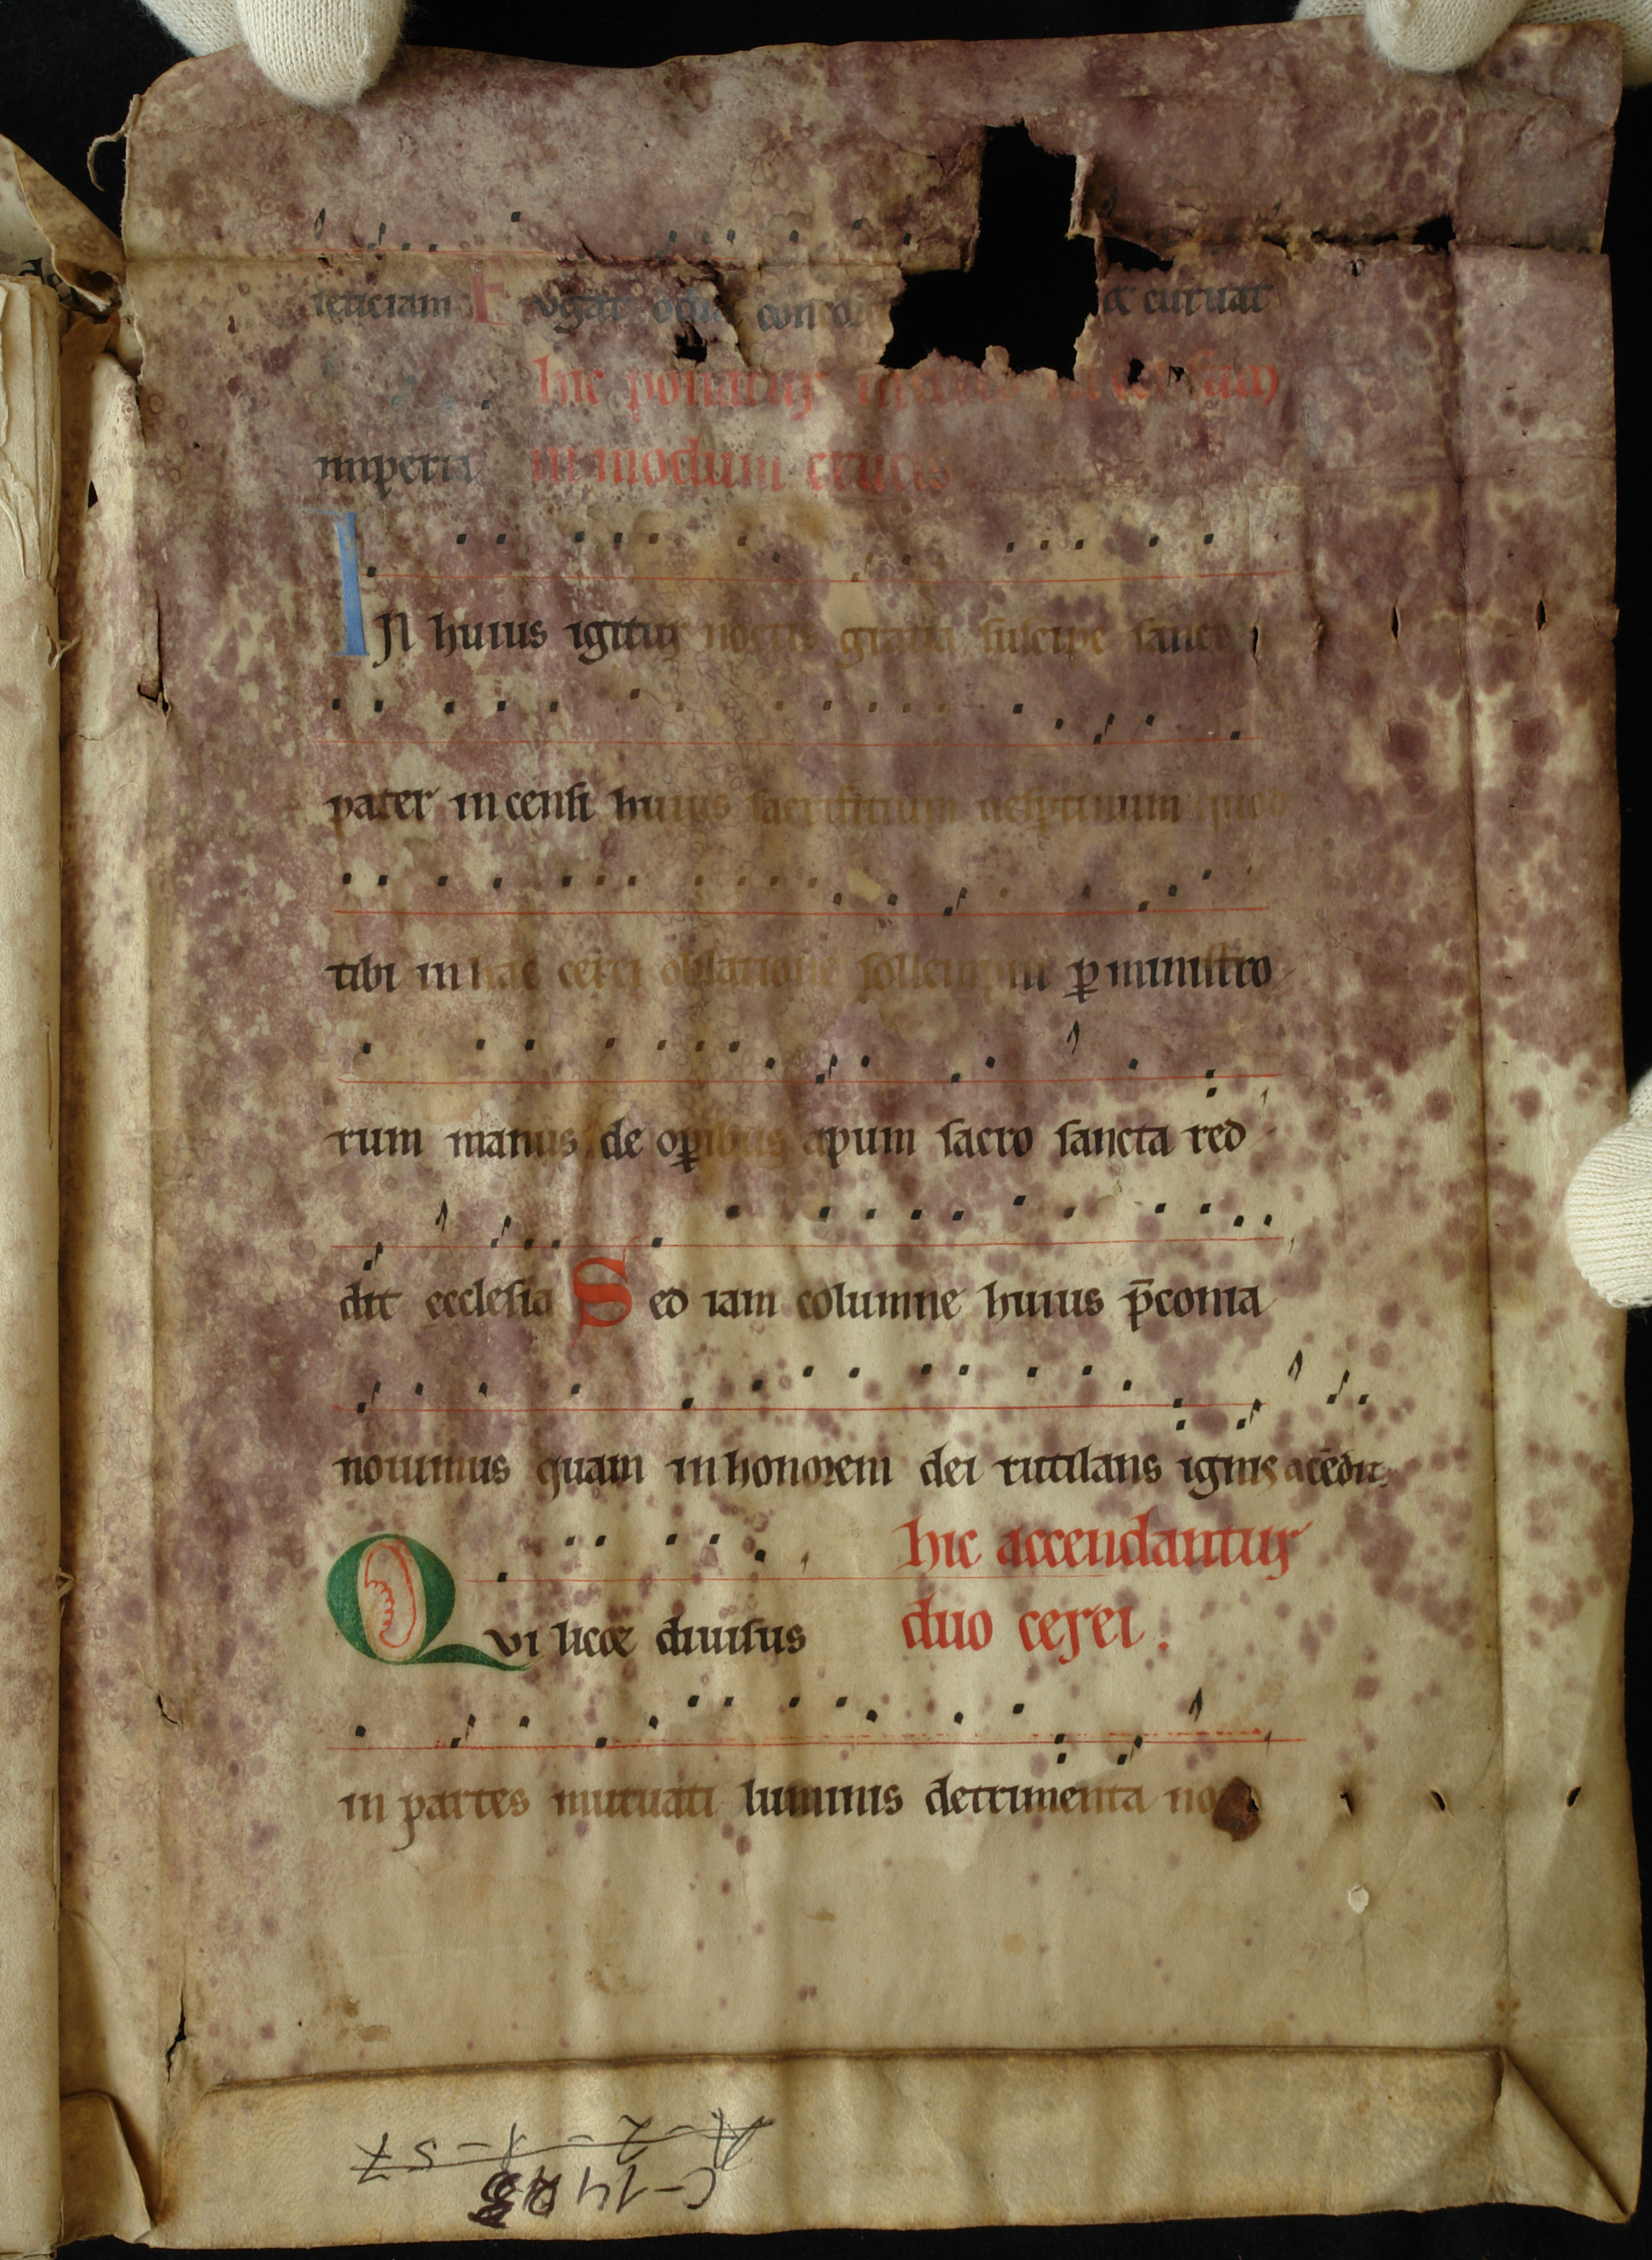 leticiam Fvgat odia con et curuat
hic ponatur in modum
imperia in modum crucis
IN huius igitur noctis gratia suscipe sancte
pater incensi huius sacrificium uesptinum quod
tibi in hac cerei oblatione sollempni p̱ ministro
rum manus de op̱ibus apum sacro sancta red
dit ecclesia Sed iam columne huius p̄conia
nouimus quam in honorem dei rutilans ignis acēdit
hic accendantur
Qvi licet diuisus duo cerei.
in partes mutuati luminis detrimenta no
A-2-1-57
C-14